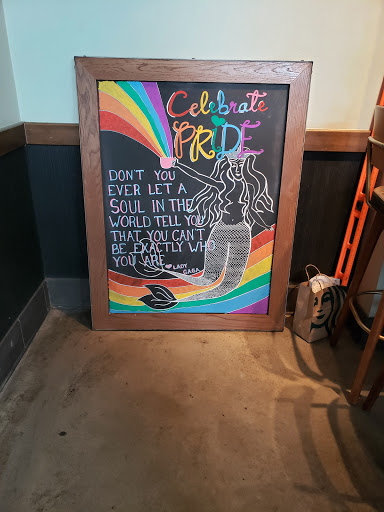 Celebrate
PRIDE
DON'T YOU
EVER LET A
SOUL IN THE
WORLD TELL YOU
THAT YOU CAN'T
BE EXACTLY WHO
YOU ARE.
LADY
GAGA